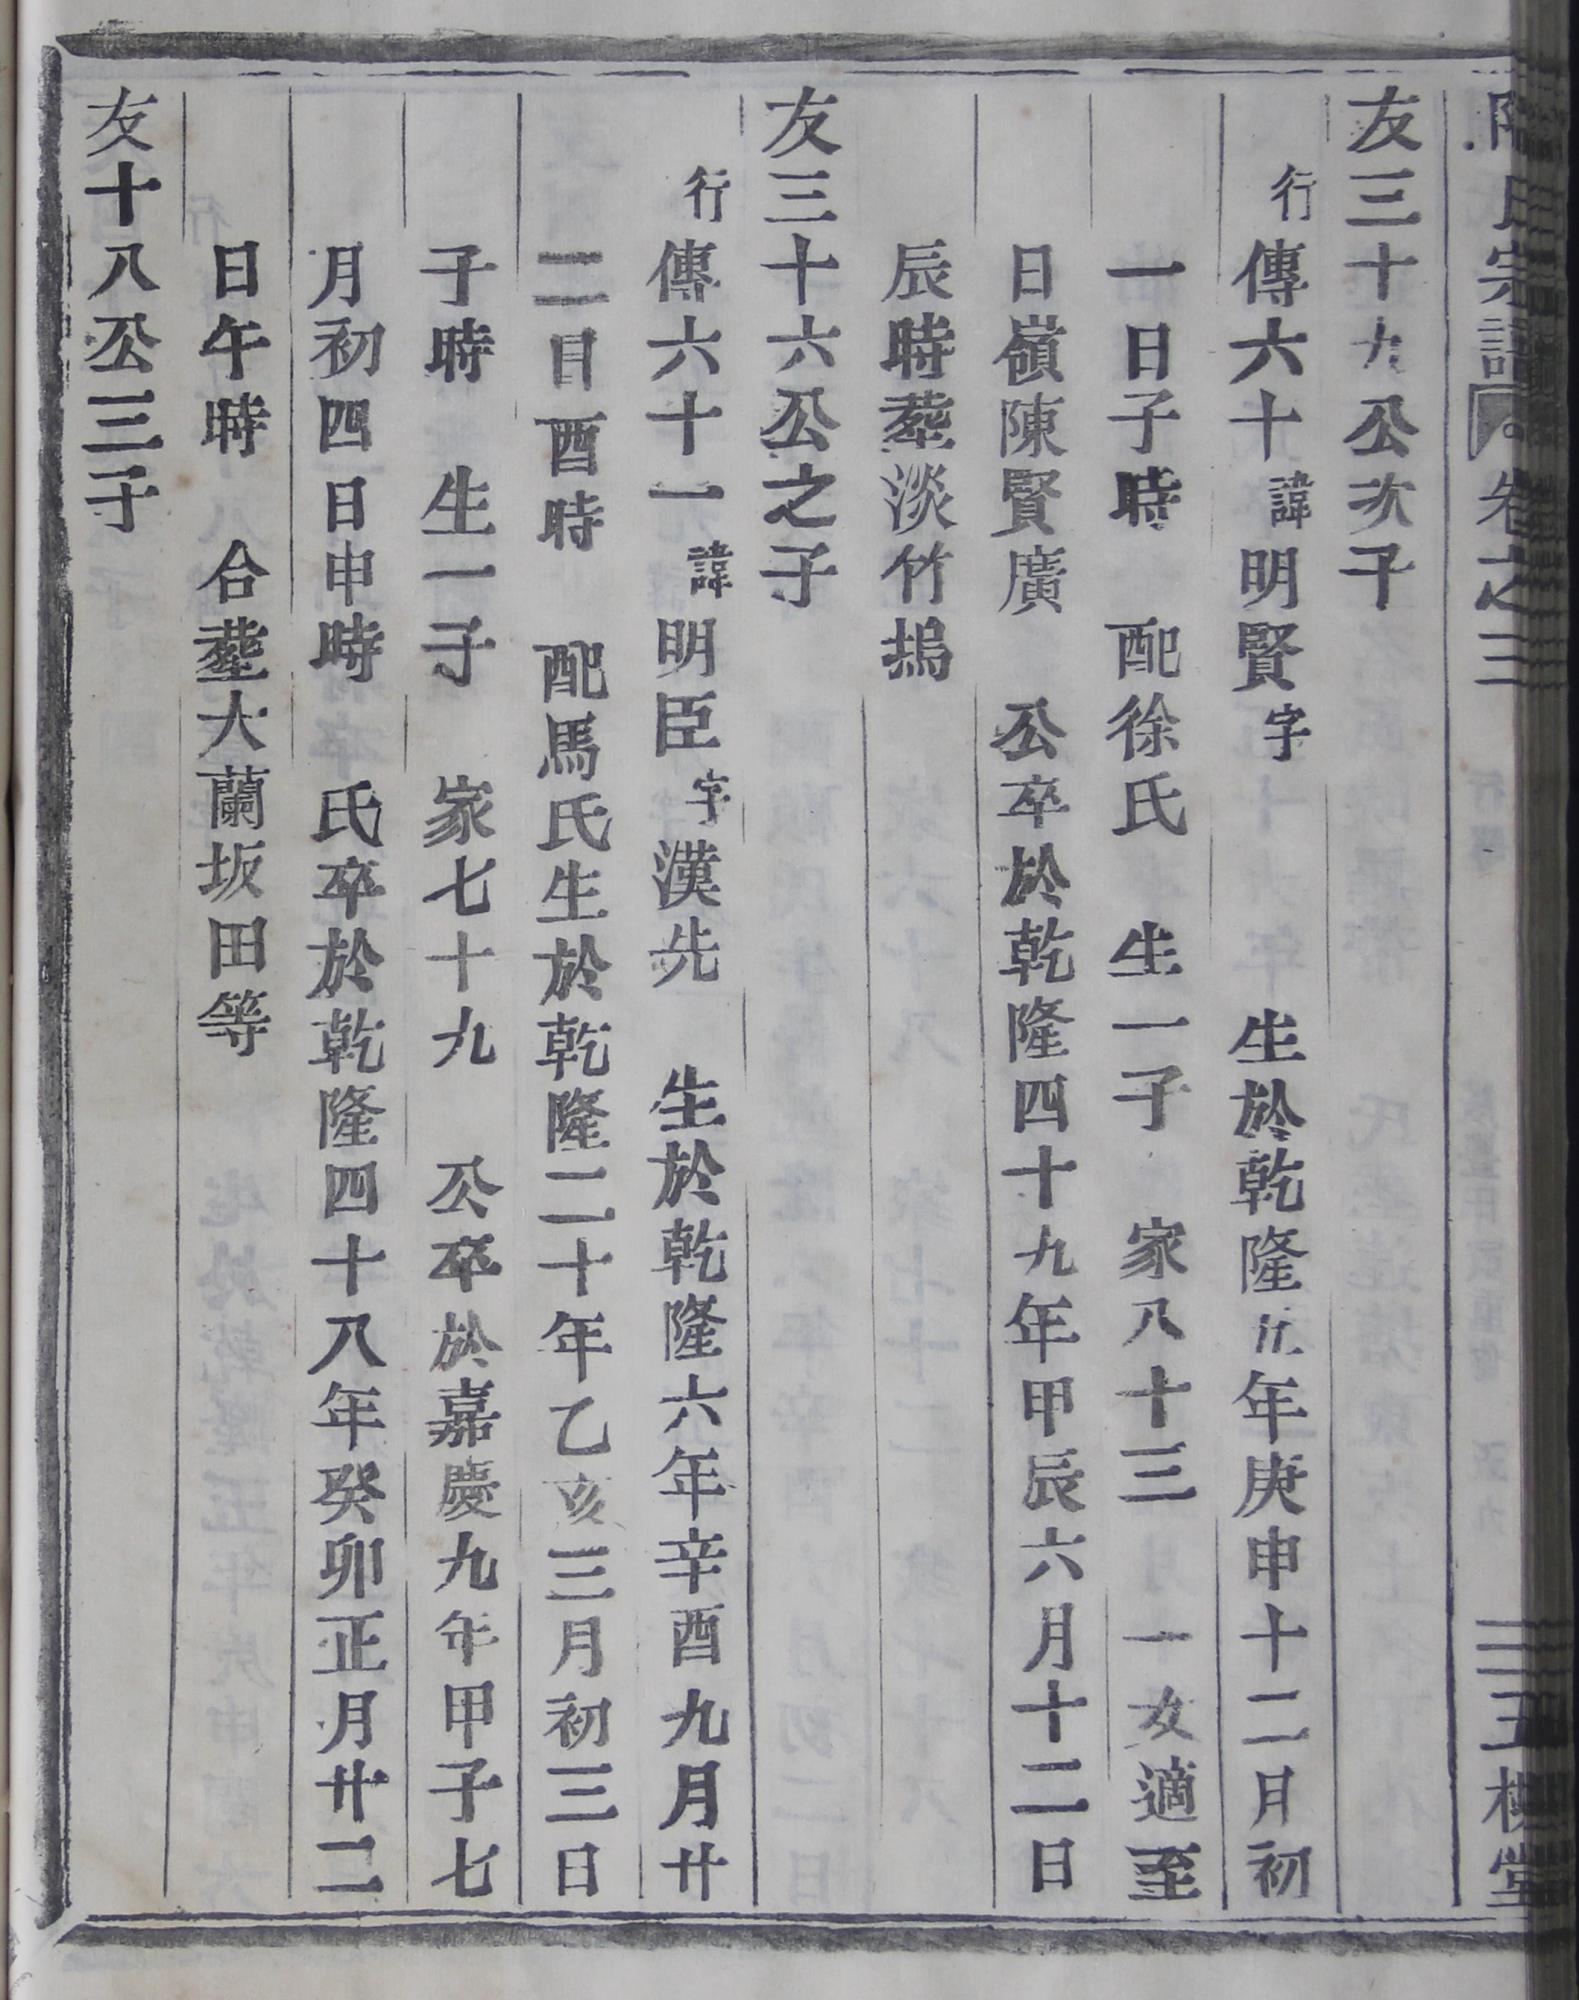 氏宗譜 卷之三 三五槐堂
友三十九公次子
行傳六十諱明賢字 生於乾隆五年庚申十二月初
一日子時 配徐氏 生一子 家八十三 一女適至
日嶺陳賢廣 公卒於乾隆四十九年甲辰六月十二日
辰時葬淡竹塢
友三十六公之子
行傳六十一諱明臣字漢先 生於乾隆六年辛酉九月廿
二日酉時 配馬氏生於乾隆二十年乙亥三月初三日
子時 生一子 家七十九 公卒於嘉慶九年甲子七
月初四日申時 氏卒於乾隆四十八年癸卯正月廿二
日午時 合葬大蘭坂田等
友十八公三子